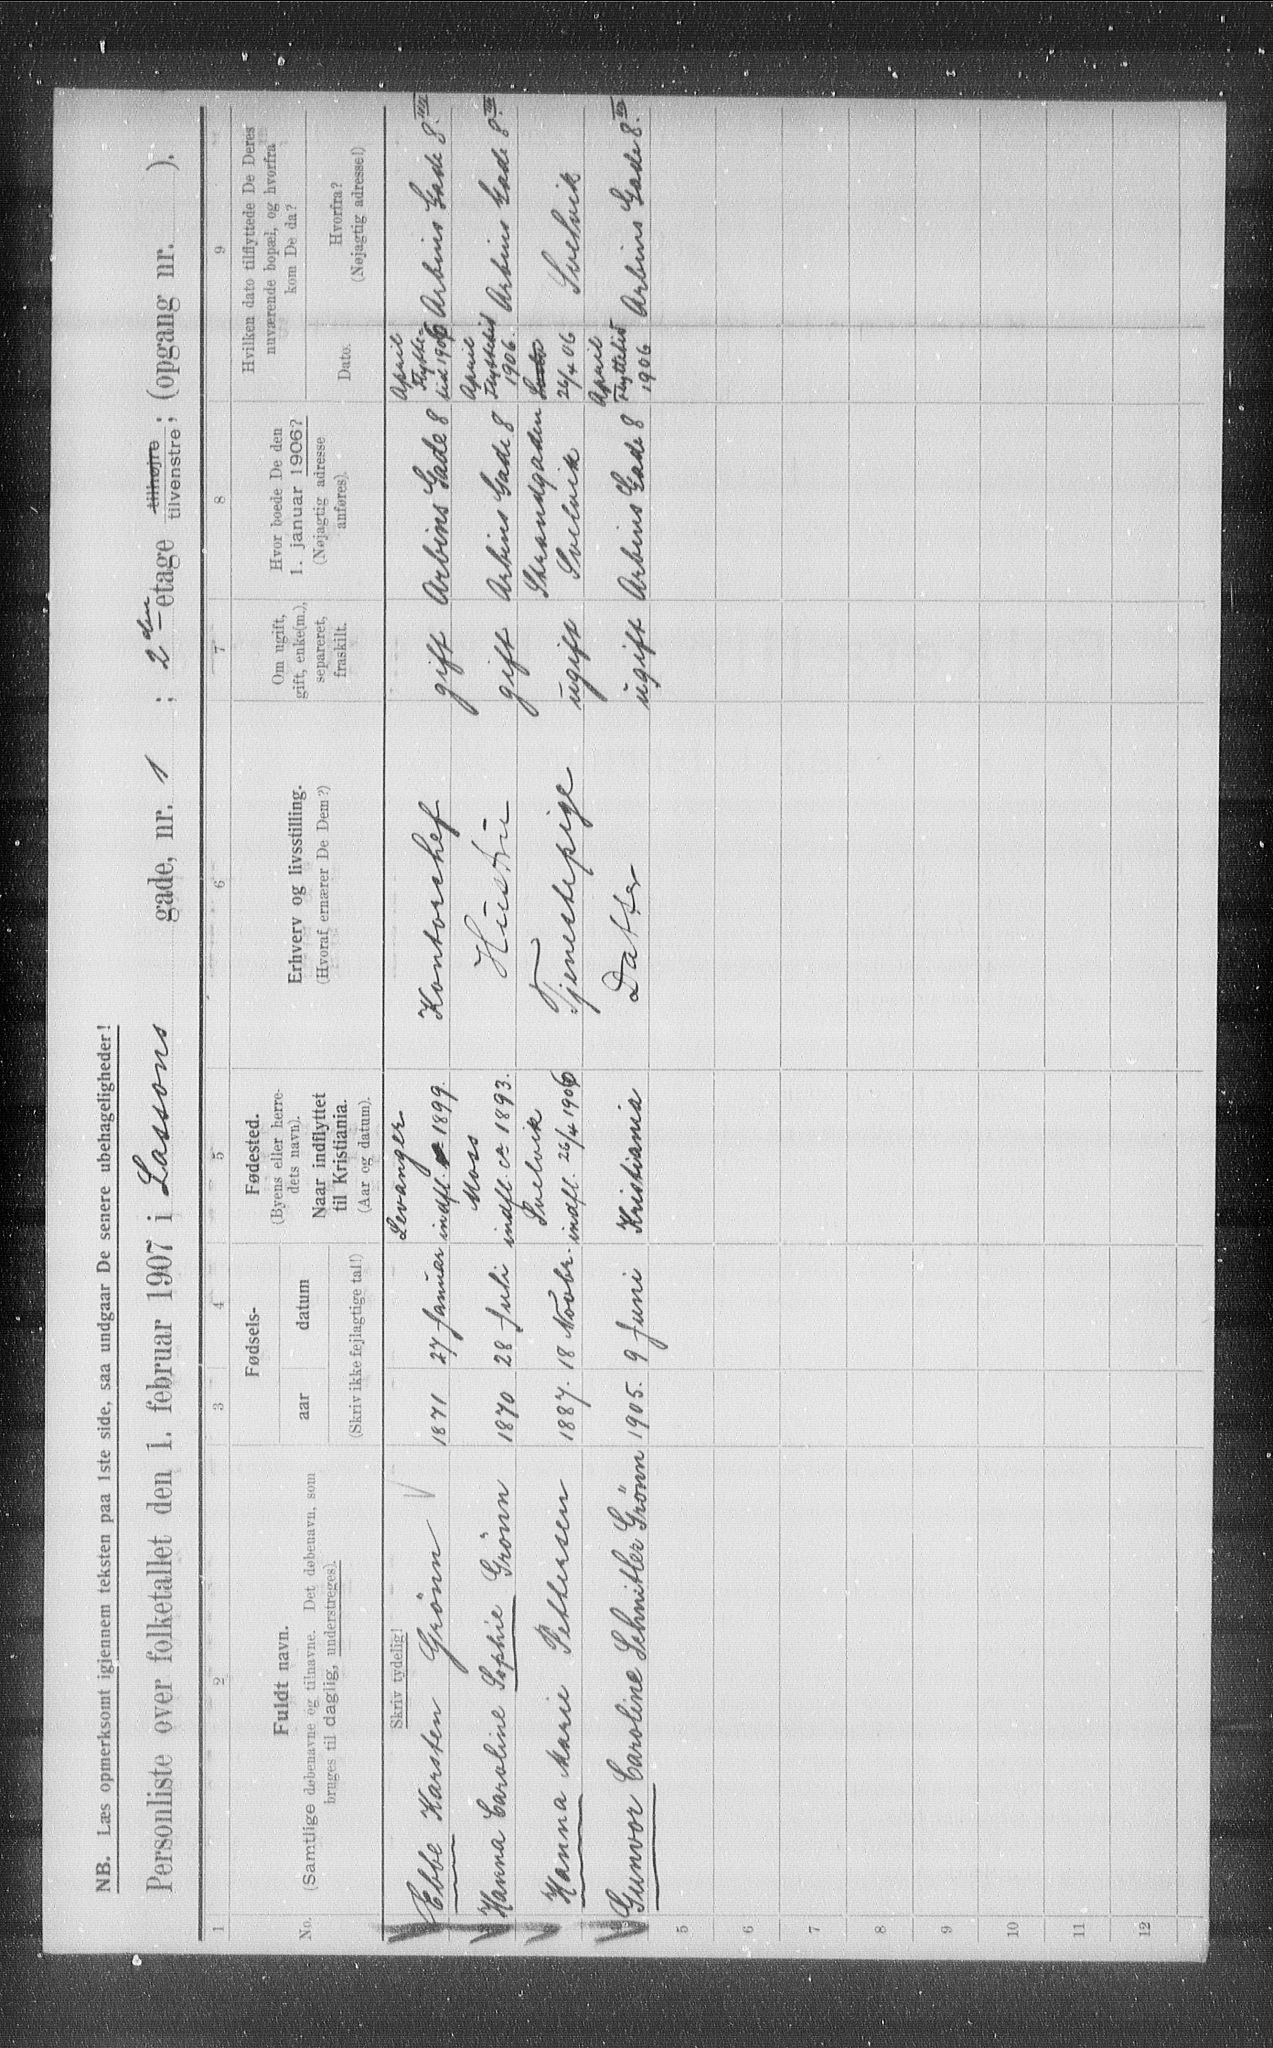 NB. Læs opmerksomt igjennem teksten paa 1ste side, saa undgaar De senere ubehageligheder!
Personliste over folketallet den 1. februar 1907 i Lassons gade, nr. 1 ; 2den etage tilhøjre tilvenstre; (opgang nr. ).
1 2 3 4 5 6 7 8 9
No.
Fuldt navn.
(Samtlige døbenavne og tilnavne. Det døbenavn, som
bruges til daglig, understreges).
Fødsels-
aar datum
(Skriv ikke fejlagtige tal!)
Fødested.
(Byens eller herre-
dets navn).
Naar indflyttet
til Kristiania.
(Aar og datum).
Erhverv og livsstilling.
(Hvoraf ernærer De Dem?)
Om ugift,
gift, enke(m.),
separeret,
fraskilt.
Hvor boede De den
1. januar 1906?
(Nøjagtig adresse
anføres).
Hvilken dato tilflyttede De Deres
nuværende bopæl, og hvorfra
kom De da?
Dato.
Hvorfra?
(Nøjagtig adresse!)
Skriv tydelig!
Ebbe Karsten Grönn 1871 27 Januar Levanger indfl. 1899. Kontorchef gift Arbins Gade 8 April Flytte-tid 1906 Arbins Gade 8.
Hanna Caroline Sophie Grönn 1870 28 Juli Moss indfl. ca 1893. Hustru gift Arbins Gade 8 April Flyttetid 1906. Arbins Gade 8.
Hanna Marie Pettersen 1887. 18 Novbr. Svelvik indfl. 26/4 1906 Tjenestepige ugift Strandgaden Svelvik 26/4 06 Svelvik
Gunvor Caroline Schnitler Grönn 1905. 9 Juni Kristiania Datter ugift Arbins Gade 8 April Flyttetid 1906 Arbins Gade 8.
5
6
7
8
9
10
11
12